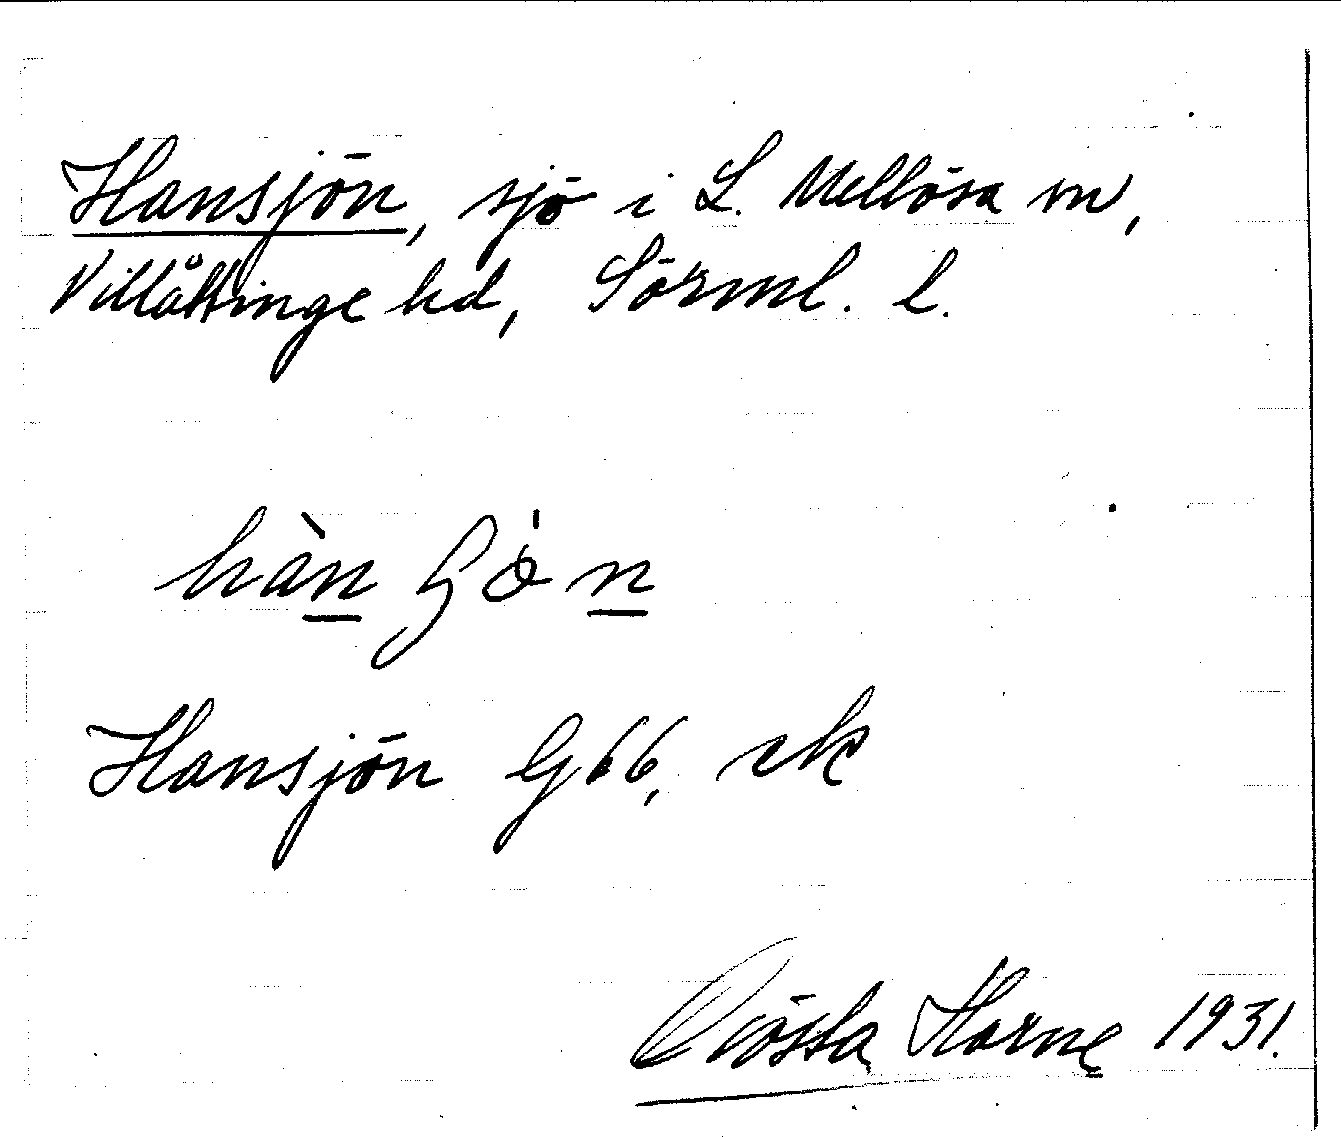 Hansjön, sjö i L. Mellösa sn,
Villåttinge hd, Sörml. l.
Hansjön G 66, ek
Gösta Horne 1931.